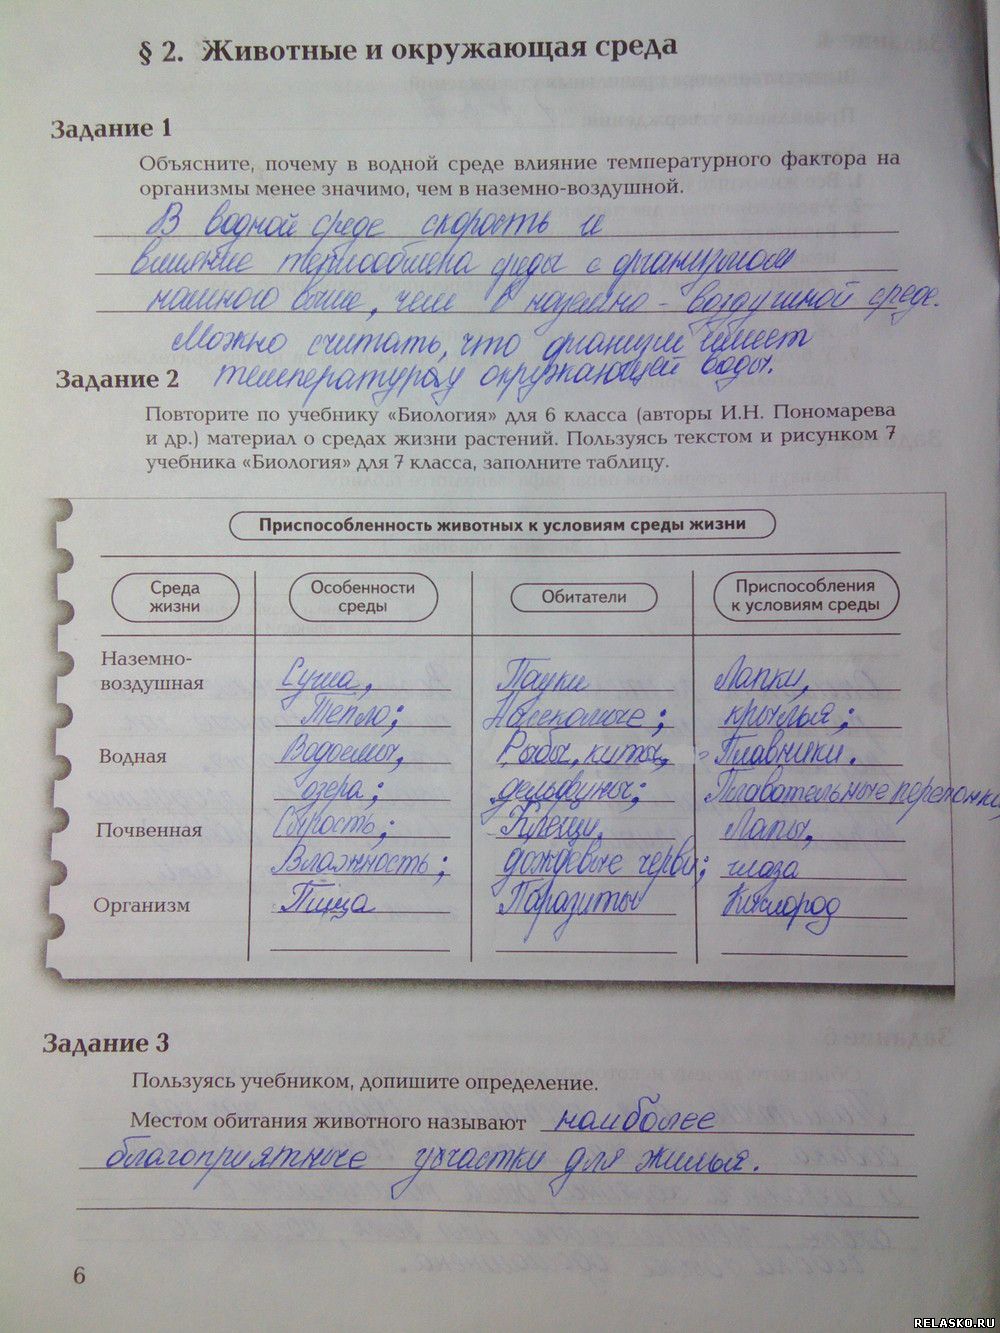 § 2. Животные и окружающая среда
Задание 1
Объясните, почему в водной среде влияние температурного фактора на
организмы менее значимо, чем в наземно-воздушной.
В водной среде скорость и
влияние термообмена среды с организмом
намного выше, чем в наземно-воздушной среде.
Можно считать, что организм имеет
температуру окружающей воды.
Задание 2
Повторите по учебнику «Биология» для 6 класса (авторы И.Н. Пономарева
и др.) материал о средах жизни растений. Пользуясь текстом и рисунком 7
учебника «Биология» для 7 класса, заполните таблицу.
Приспособленность животных к условиям среды жизни
Среда жизни
Особенности среды
Обитатели
Приспособления к условиям среды
Наземно-
воздушная Суша, Пауки Лапки,
Тепло; Насекомые; крылья;
Водная Водоемы, Рыбы, киты, Плавники.
озера; дельфины; Плавательные перепонки
Почвенная Сырость; Клещи, Лапы,
Влажность; дождевые черви; глаза
Организм Пища Паразиты Кислород
Задание 3
Пользуясь учебником, допишите определение.
Местом обитания животного называют наиболее
благоприятные участки для жилья.
6
RELASKO.RU